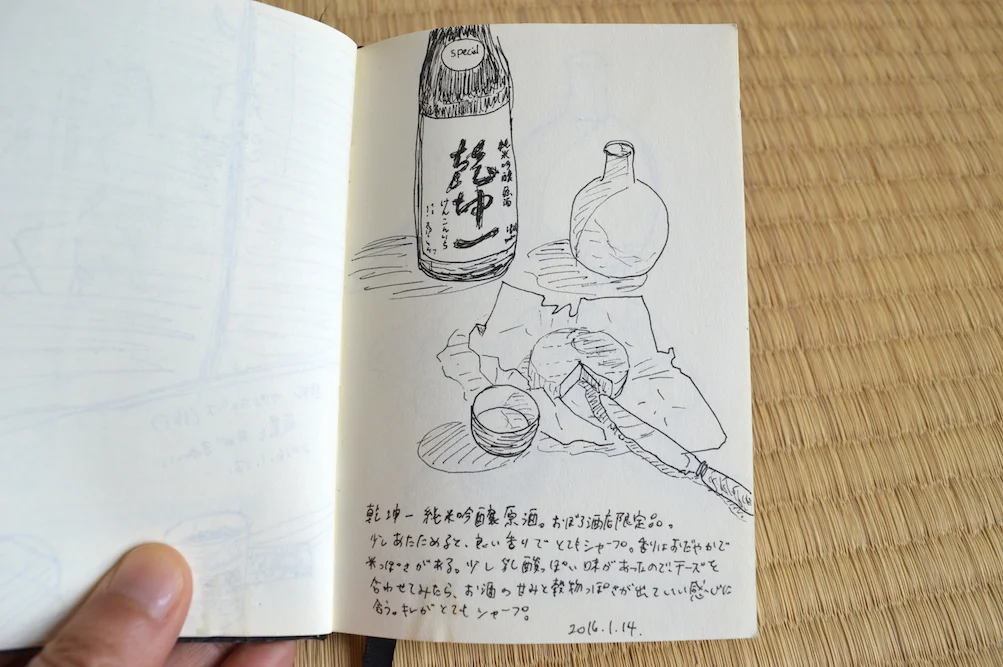 special
純米吟醸原酒
乾坤一
けんこんいち
乾坤一 純米吟醸原酒。おぼろ酒店限定品。
少しあたためると、良い香りでとてもシャープ。香りはおだやかで
米っぽさがある。少し乳酸っぽい味があったのでチーズを
合わせてみたら、お酒の甘みと穀物っぽさが出ていい感じに
合う。キレがとてもシャープ。
2016.1.14.